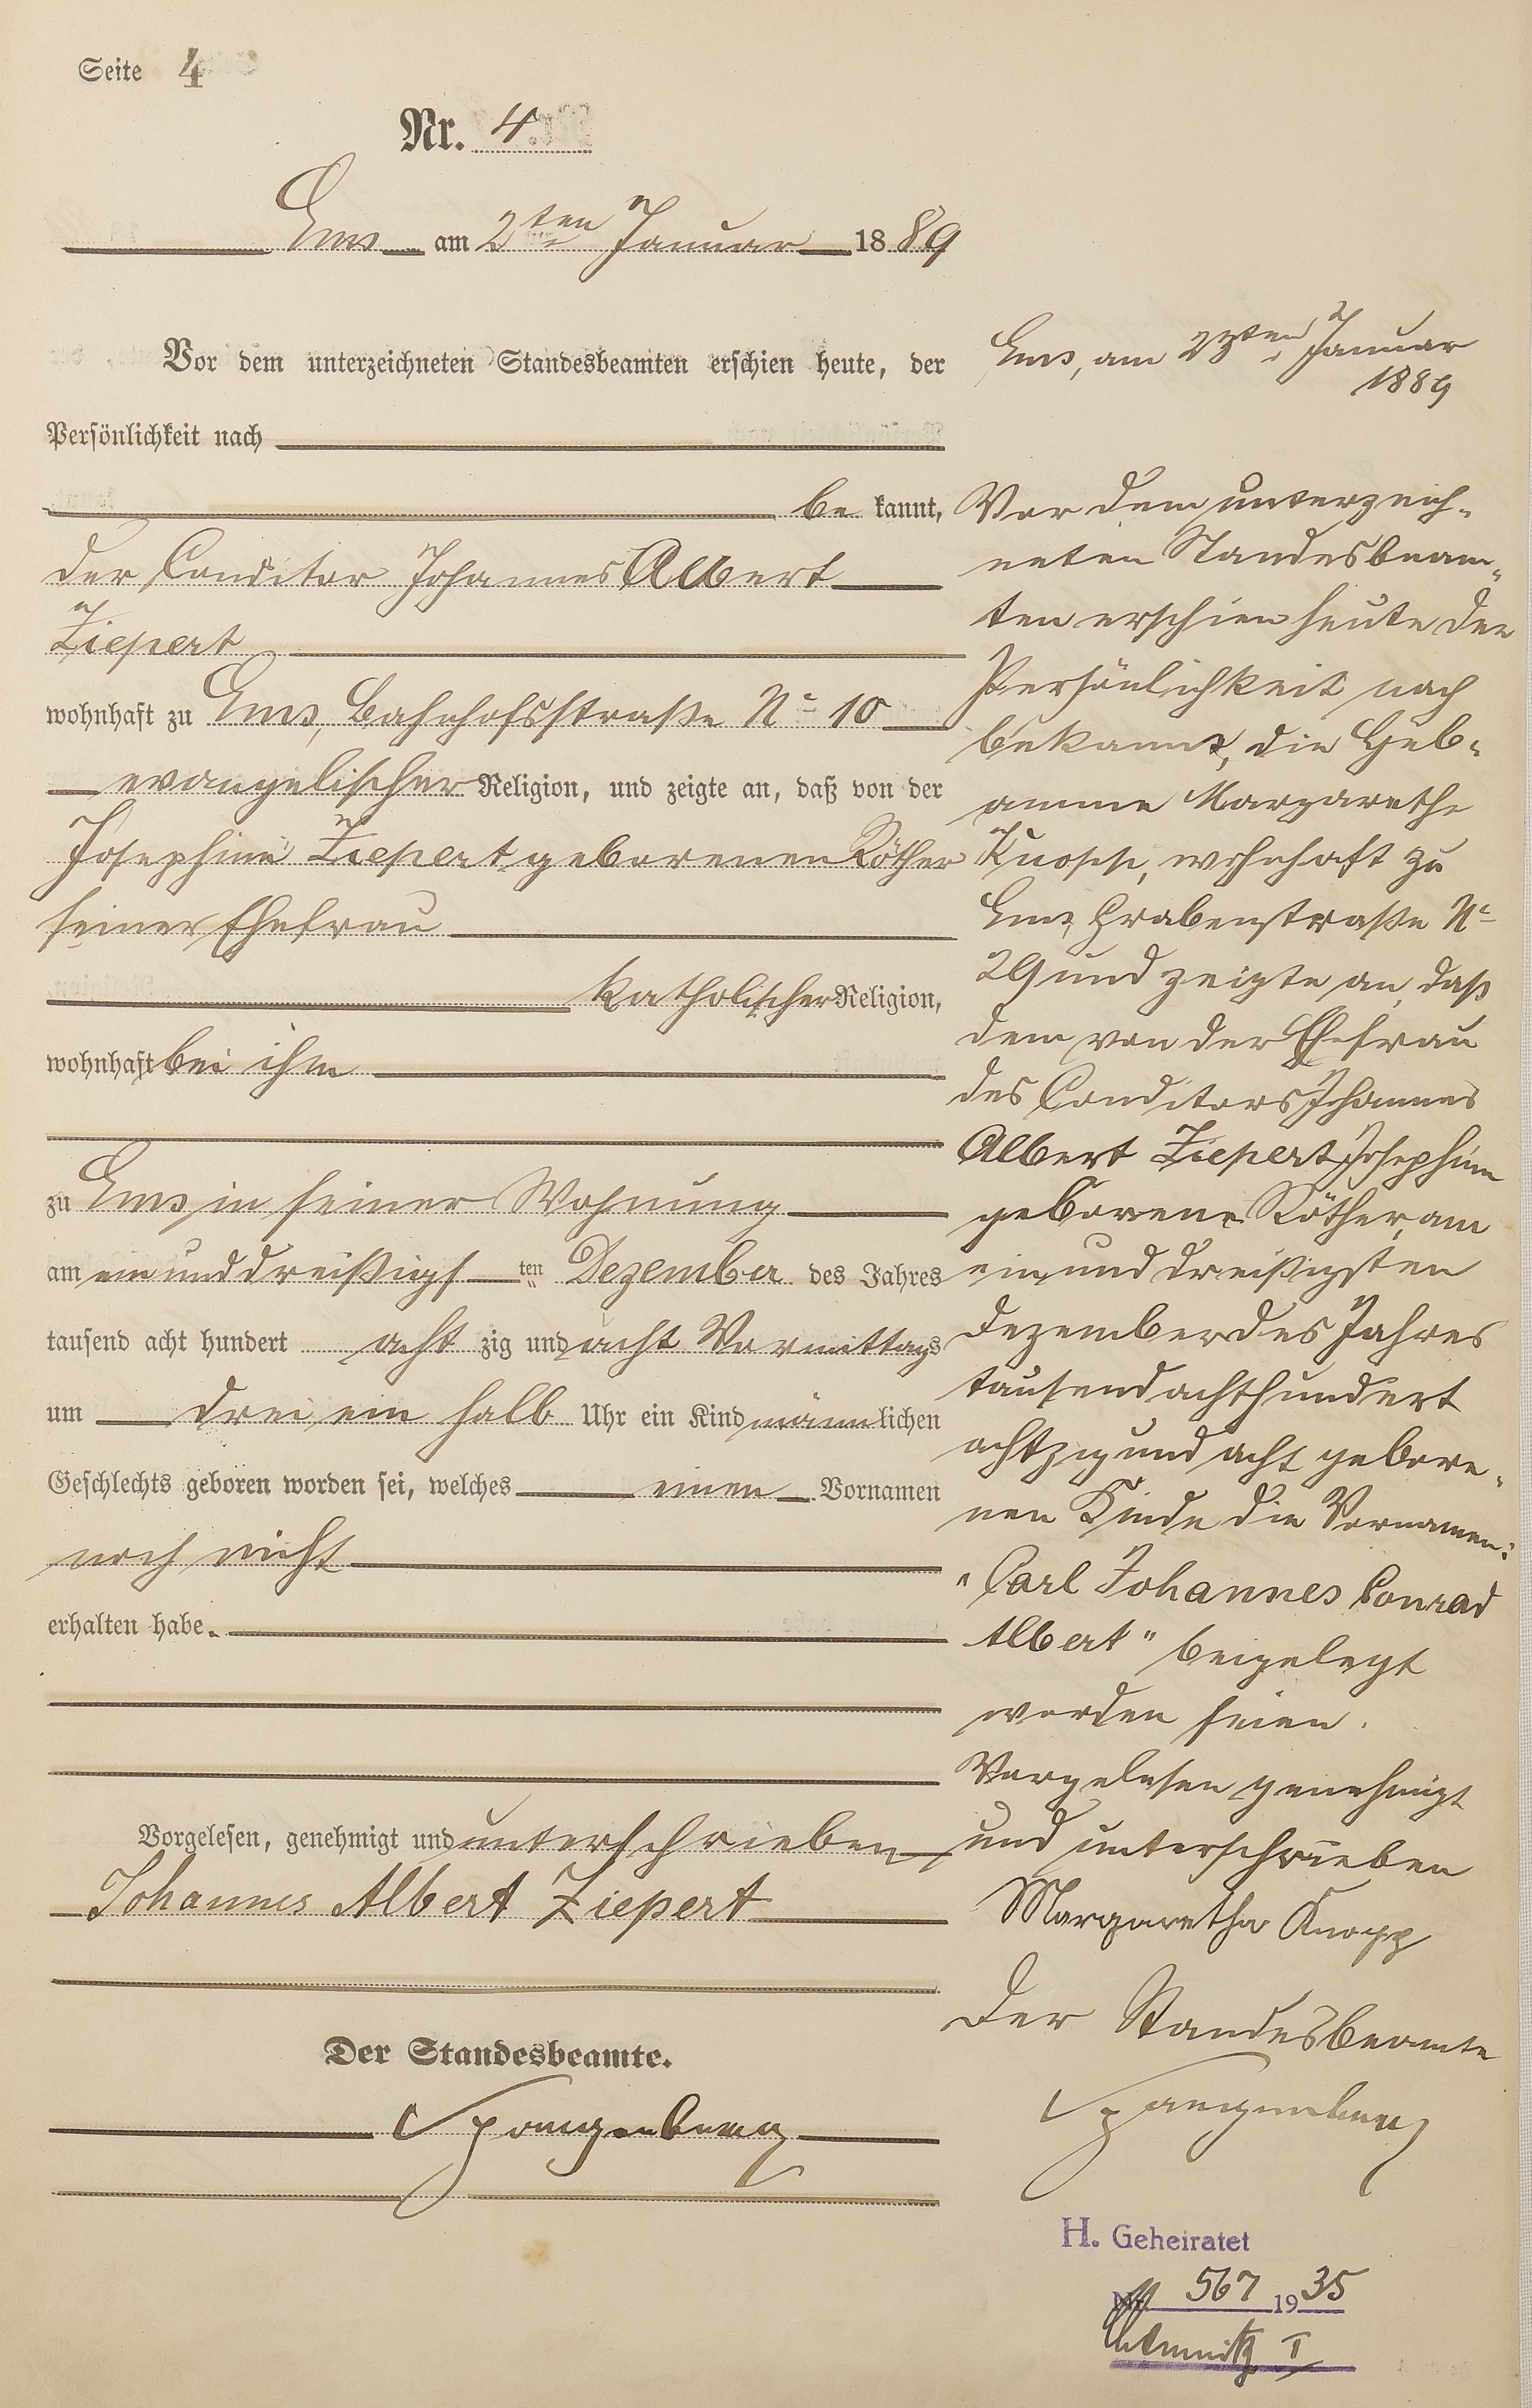 Seite 4
Nr. 4.
Ems am 2ten Januar 1889
Vor dem unterzeichneten Standesbeamten erschien heute, der
Persönlichkeit nach
be kannt,
der Conditor Johannes Albert
Ziepert
wohnhaft zu Ems, Bahnhofsstraße No 10
evangelischer Religion, und zeigte an, daß von der
Josephine Ziepert geborenen Röther
seiner Ehefrau
katholischer Religion,
wohnhaft bei ihm
zu Ems in seiner Wohnung
am ein und dreißigst ten Dezember des Jahres
tausend acht hundert acht zig und acht Vormittags
um drei ein halb Uhr ein Kind männlichen
Geschlechts geboren worden sei, welches einen Vornamen
noch nicht
erhalten habe.
Vorgelesen, genehmigt und unterschrieben
Johannes Albert Ziepert
Der Standesbeamte.
Spangenberg
Ems, am 23ten Januar
1889
Vor dem unterzeich-
neten Standesbeam-
ten erschien heute der
Persönlichkeit nach
bekannt, die Heb-
amme Margarethe
Knopp, wohnhaft zu
Ems, Grabenstraße No
29 und zeigte an, daß
dem von der Ehefrau
des Conditors Johannes
Albert Ziepert, Josephine
geborene Röther, am
ein und dreißigsten
Dezember des Jahres
tausend achthundert
achtzig und acht gebore-
nen Kinde die Vornamen:
"Carl Johannes Conrad
Albert" beigelegt
worden seien.
Vorgelesen genehmigt
und unterschrieben
Margaretha Knopp
Der Standesbeamte
Spangenberg
H. Geheiratet
Nr. 567 1935
Chemnitz I